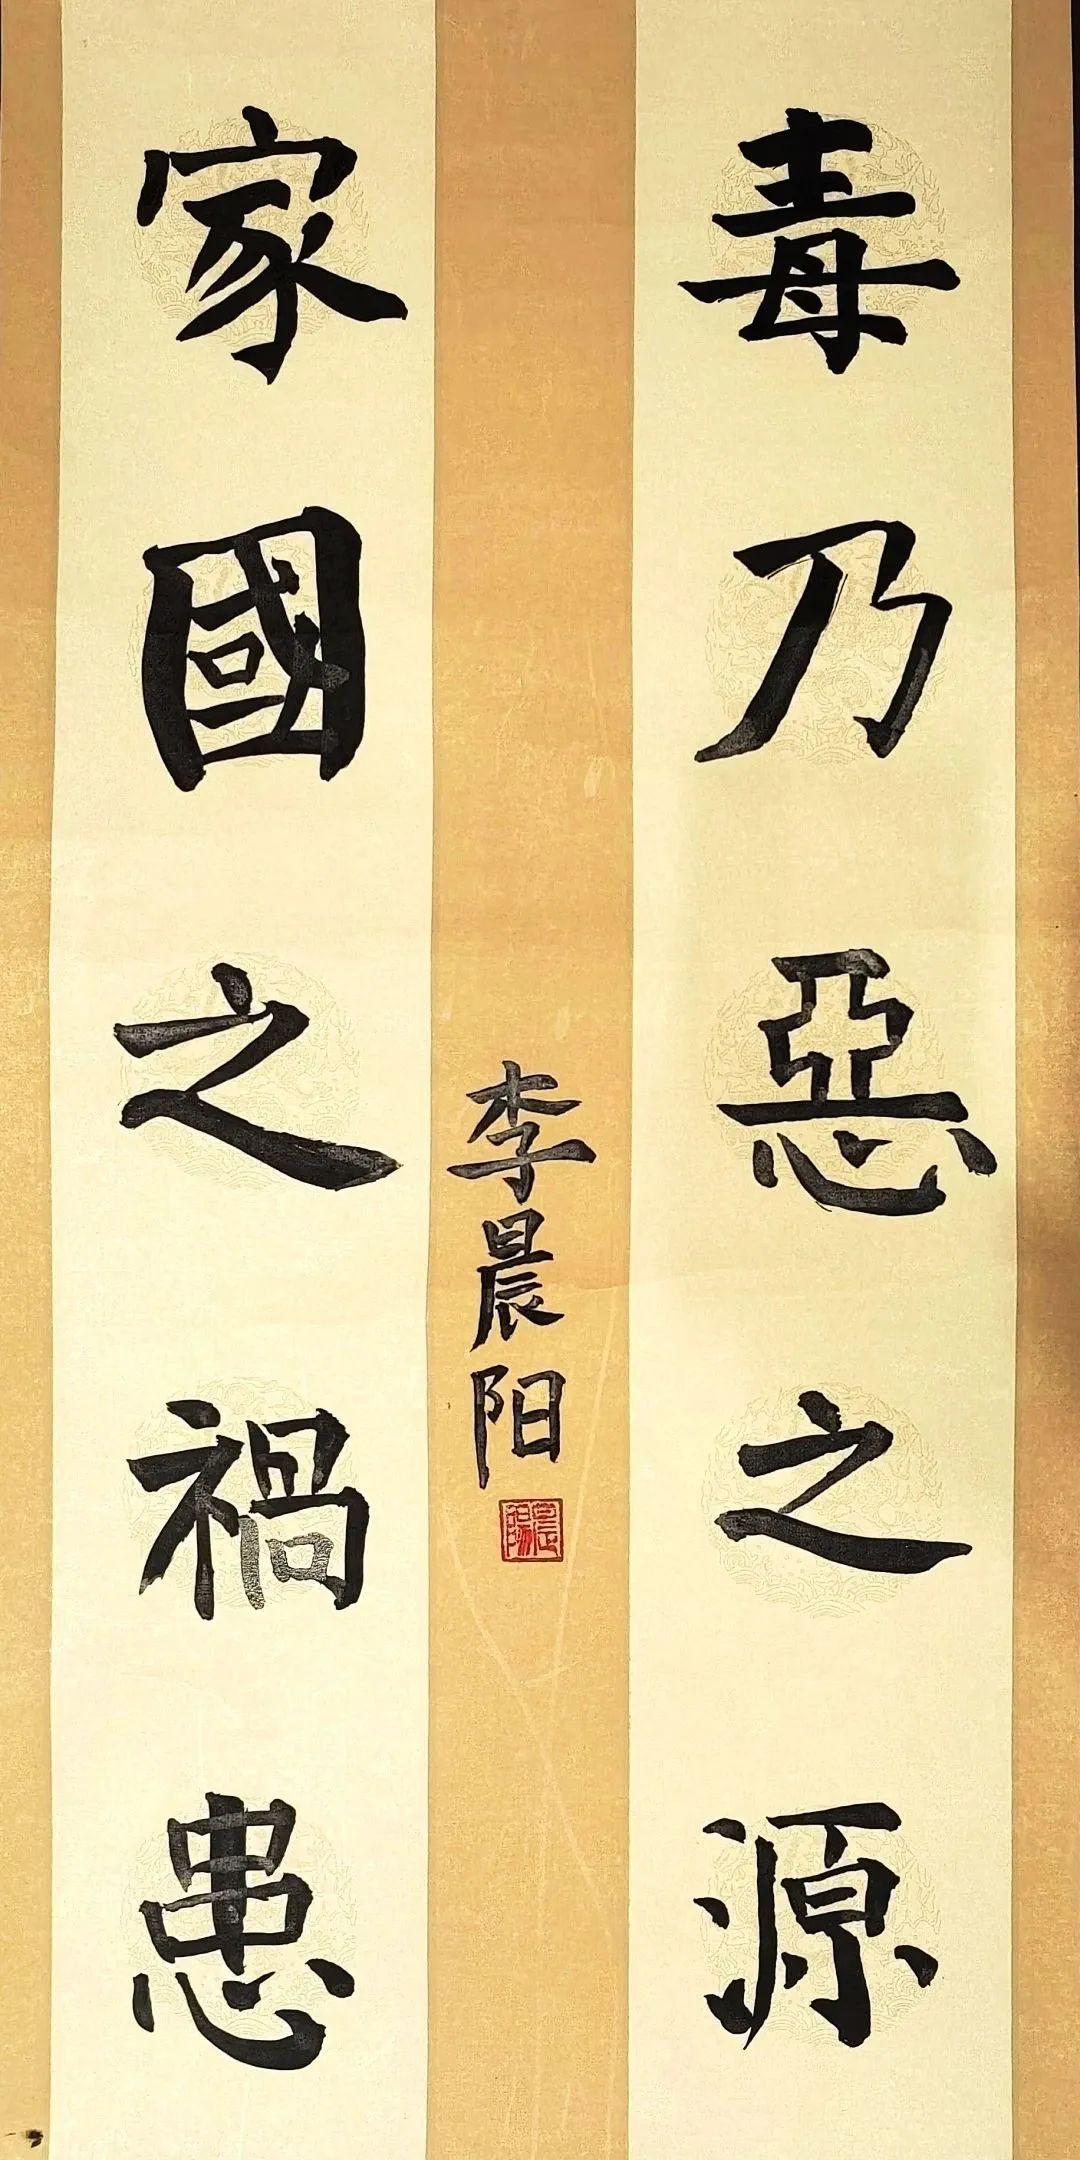 毒乃惡之源
家國之禍患
李晨阳